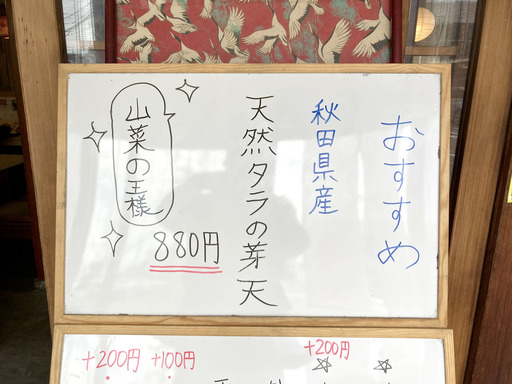 おすすめ
秋田県産
天然タラの芽天
880円
山菜の王様
+200円
+100円
+200円